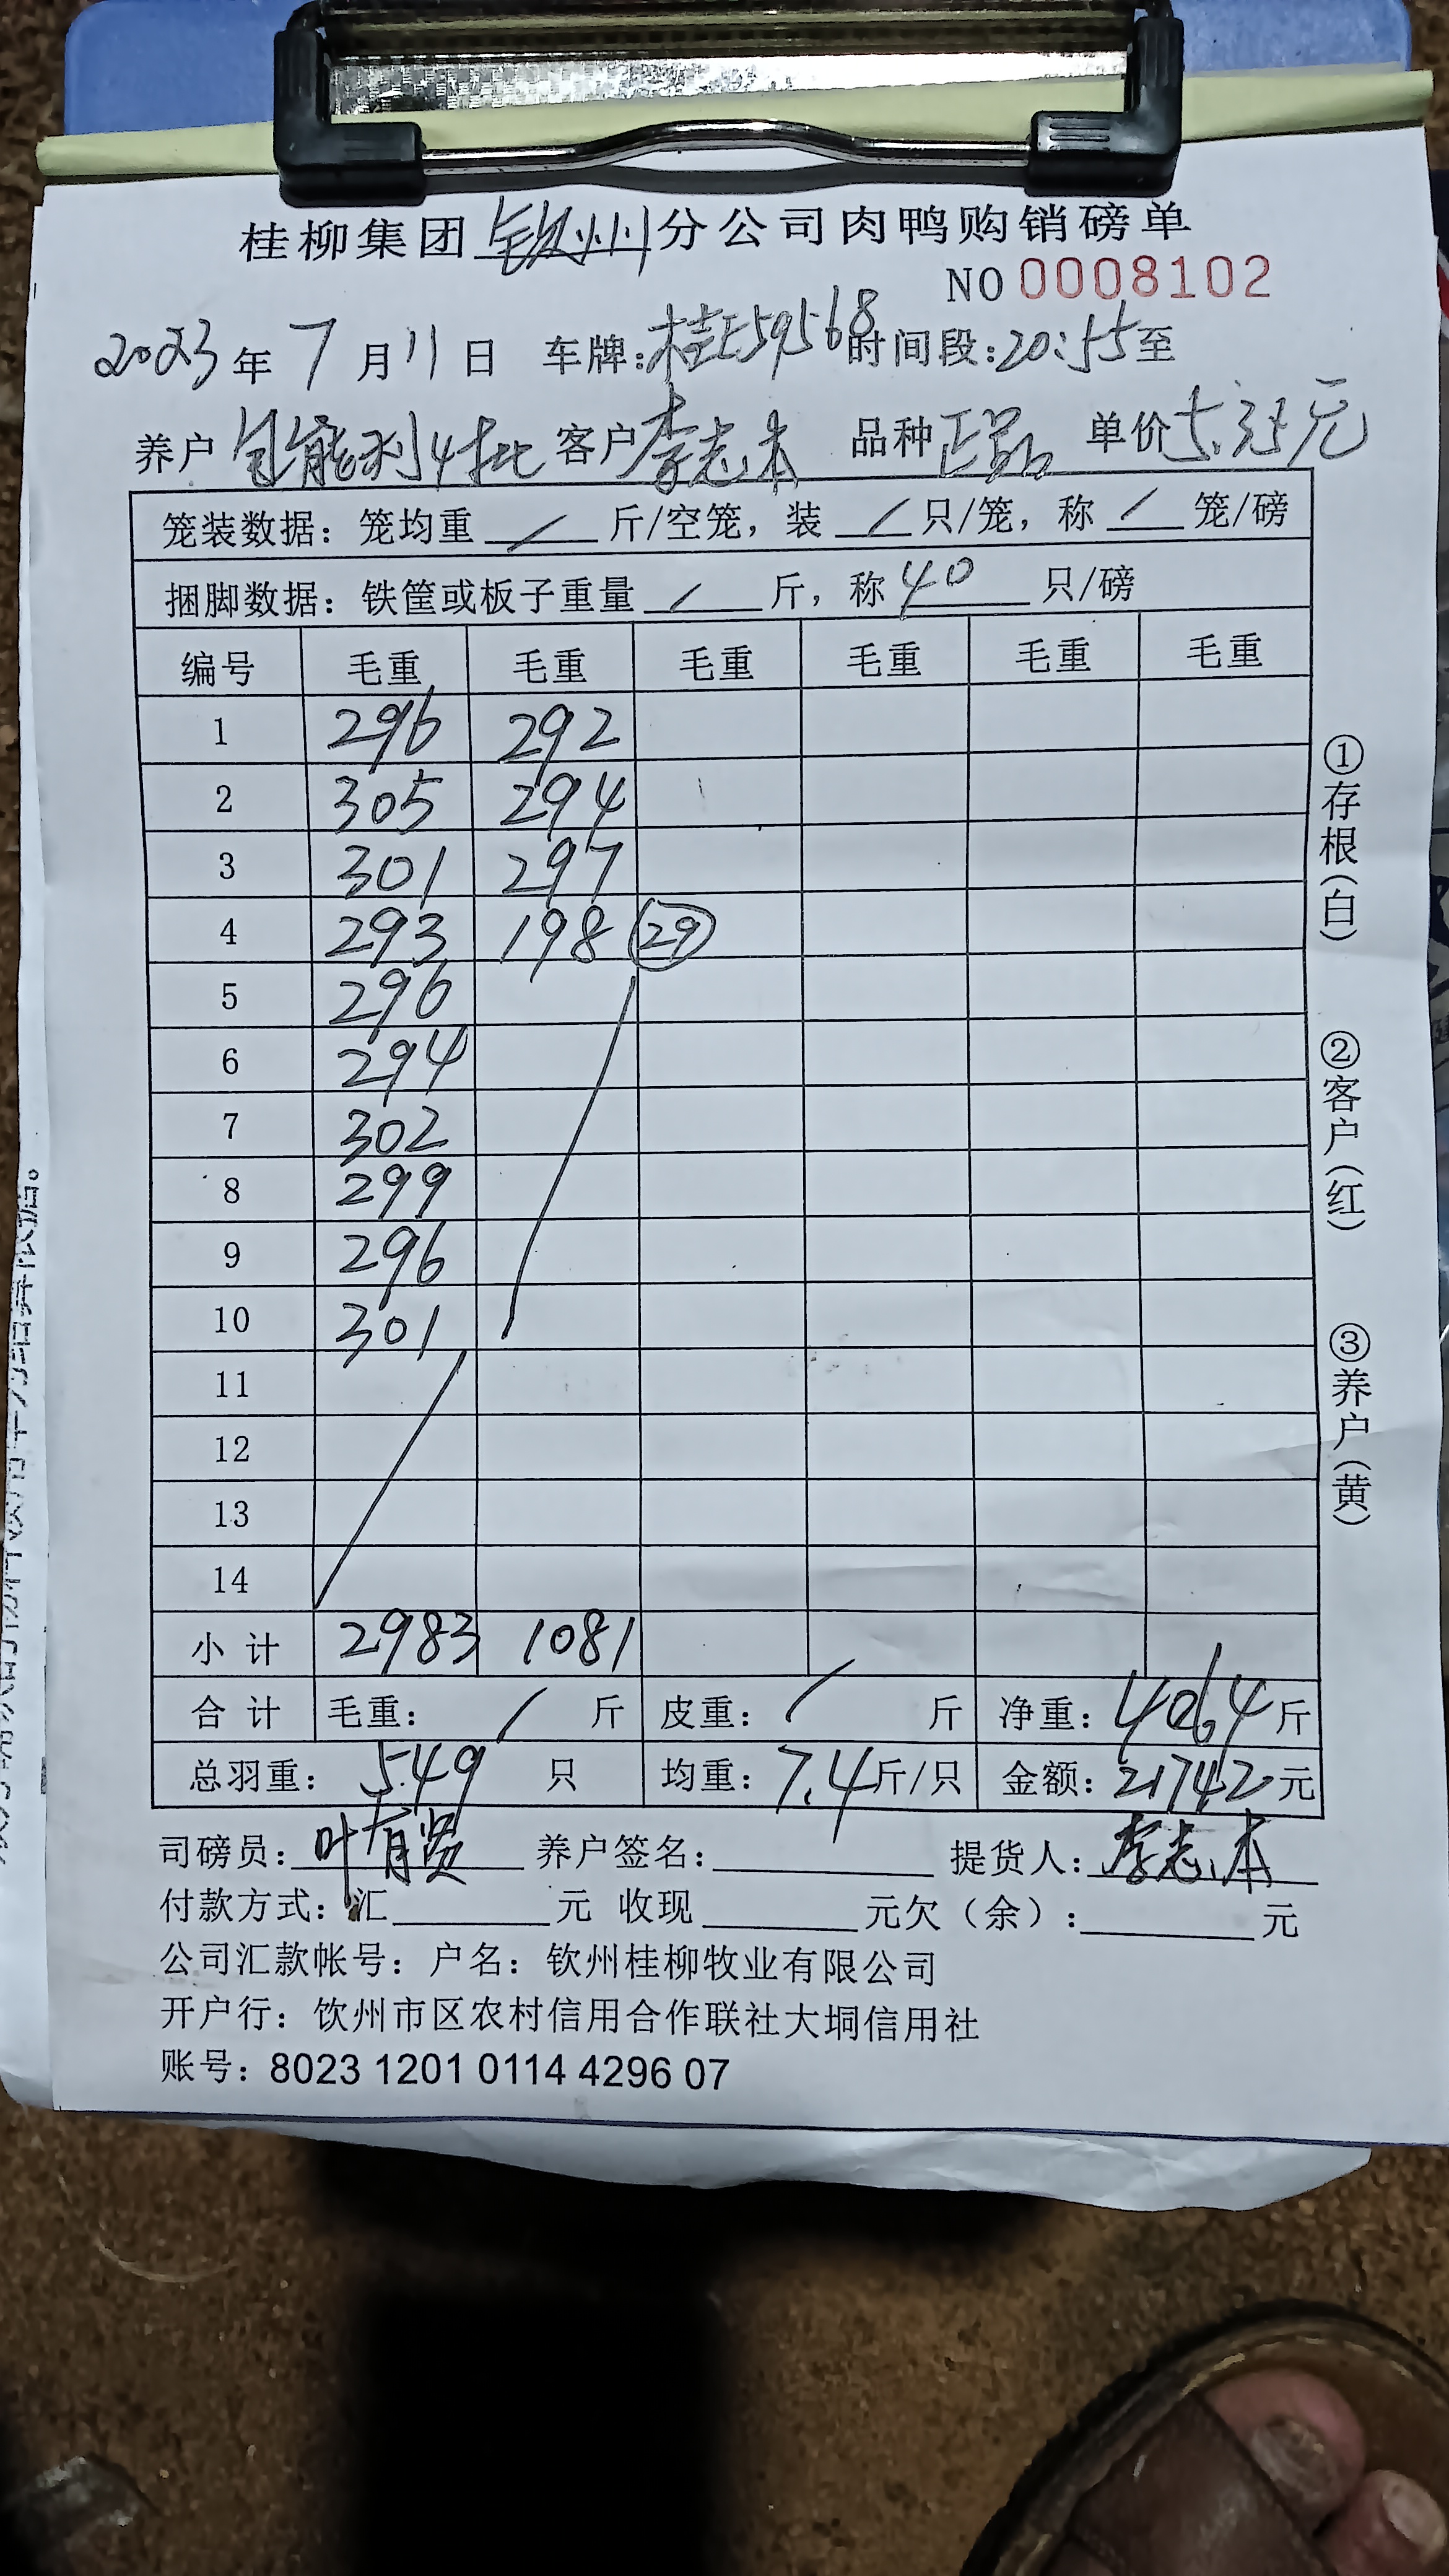 桂柳集团钦州分公司肉鸭购销磅单
NO 0008102
2023年7月11日 车牌:桂E59568 时间段:20:55至
养户 能利4批 客户李志本 品种正品 单价5.35元
笼装数据：笼均重 / 斤/空笼，装 / 只/笼，称 / 笼/磅
捆脚数据：铁筐或板子重量 / 斤，称 40 只/磅
编号 毛重 毛重 毛重 毛重 毛重 毛重
1 296 292
2 305 294
3 301 297
4 293 198 29
5 296
6 294
7 302
8 299
9 296
10 301
11
12
13
14
小计 2983 1081
合计 毛重： / 斤 皮重： / 斤 净重：4064斤
总羽重：549 只 均重：7.4斤/只 金额：21742元
司磅员：叶有贤 养户签名： 提货人：李志本
付款方式：汇 元 收现 元欠（余）： 元
公司汇款帐号：户名：钦州桂柳牧业有限公司
开户行：饮州市区农村信用合作联社大垌信用社
账号：8023 1201 0114 4296 07
①存根(白)
②客户(红)
③养户(黄)